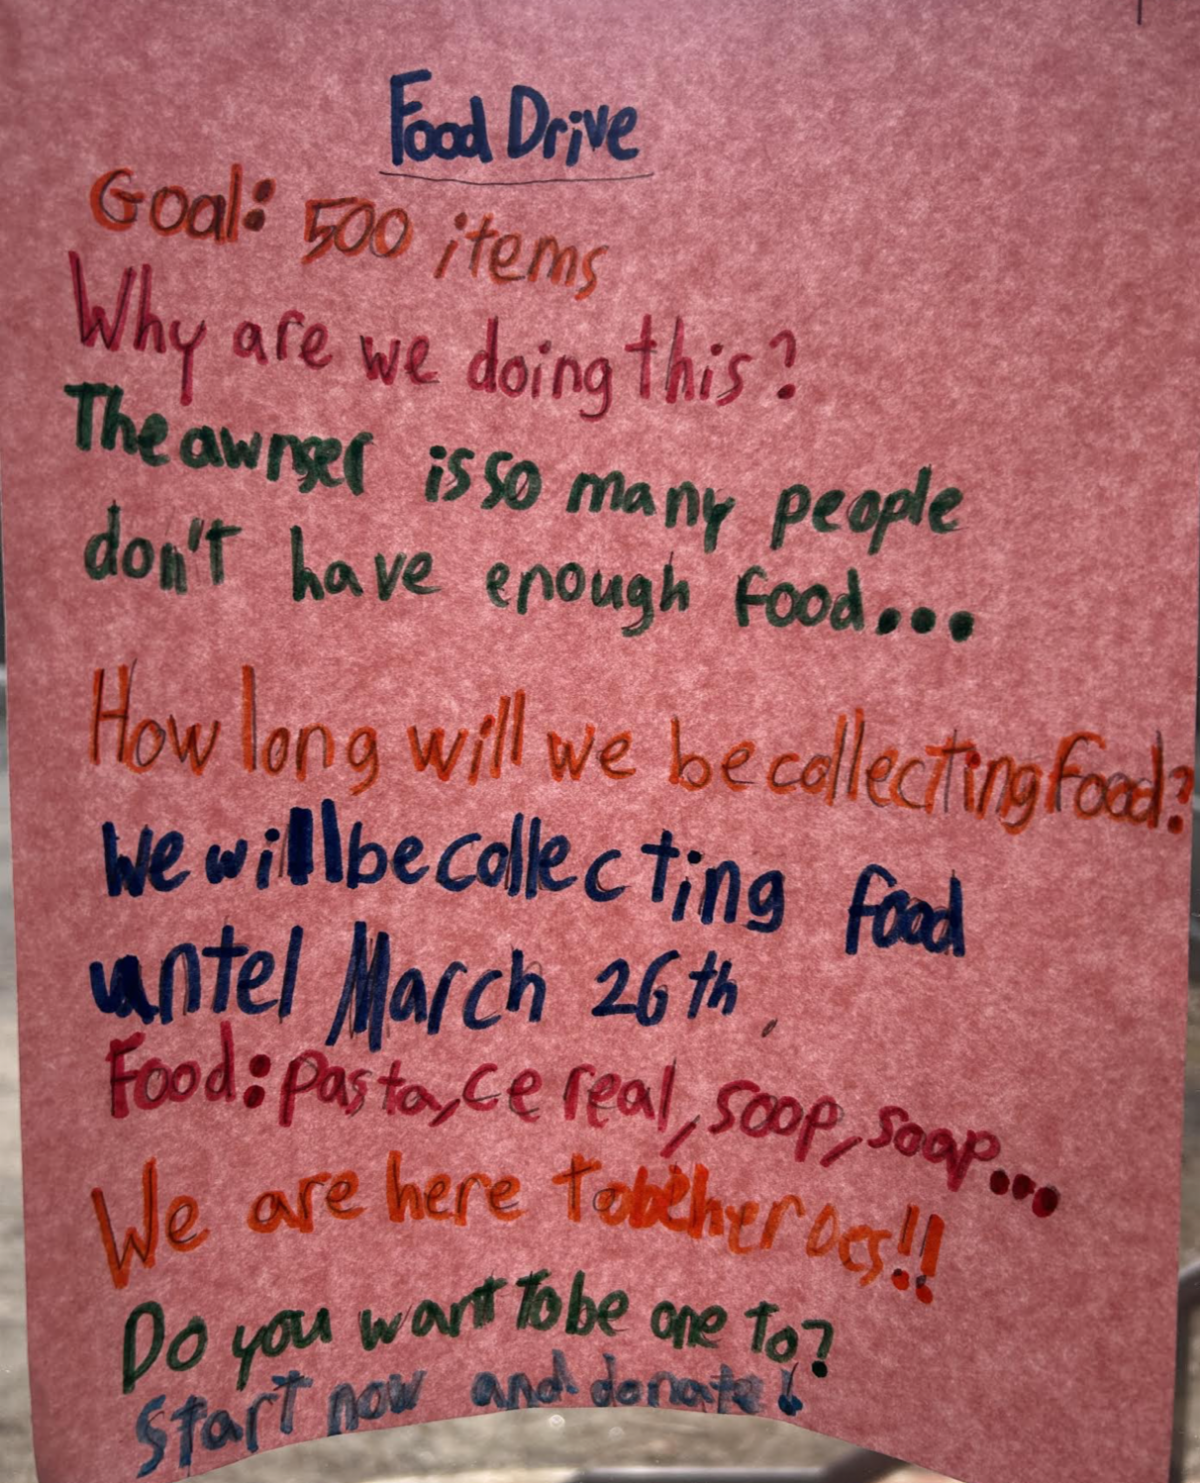 Food Drive
Goal: 500 items
Why are we doing this?
The awnser is so many people
don't have enough food...
How long will we be collecting food?
We will be collecting food
untel March 26th.
Food: pasta, cereal, soop, soap...
We are here to be heroes!!
Do you want to be one to?
Start now and donate!